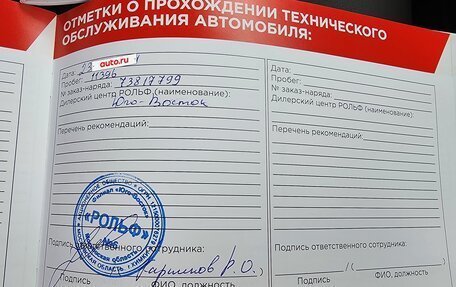 ОТМЕТКИ О ПРОХОЖДЕНИИ ТЕХНИЧЕСКОГО
ОБСЛУЖИВАНИЯ АВТОМОБИЛЯ:
Дата:
auto.ru
Пробег: 11396
№ заказ-наряда: 73819799
Дилерский центр РОЛЬФ (наименование):
Юго-Восток
Перечень рекомендаций:
Филиал «Юго-Восток»
«РОЛЬФ»
Подпись ответственного сотрудника:
Р.О.
Подпись ФИО, должность
Дата:
Пробег:
№ заказ-наряда:
Дилерский центр РОЛЬФ (наименование):
Перечень рекомендаций:
Подпись ответственного сотрудника:
/ ( )
Подпись ФИО, должность